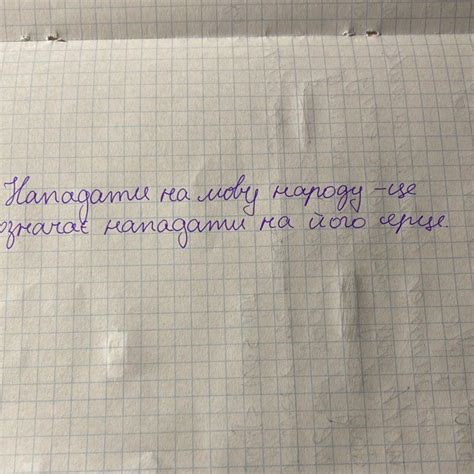 Нападати на мову народу - це
означає нападати на його серце.